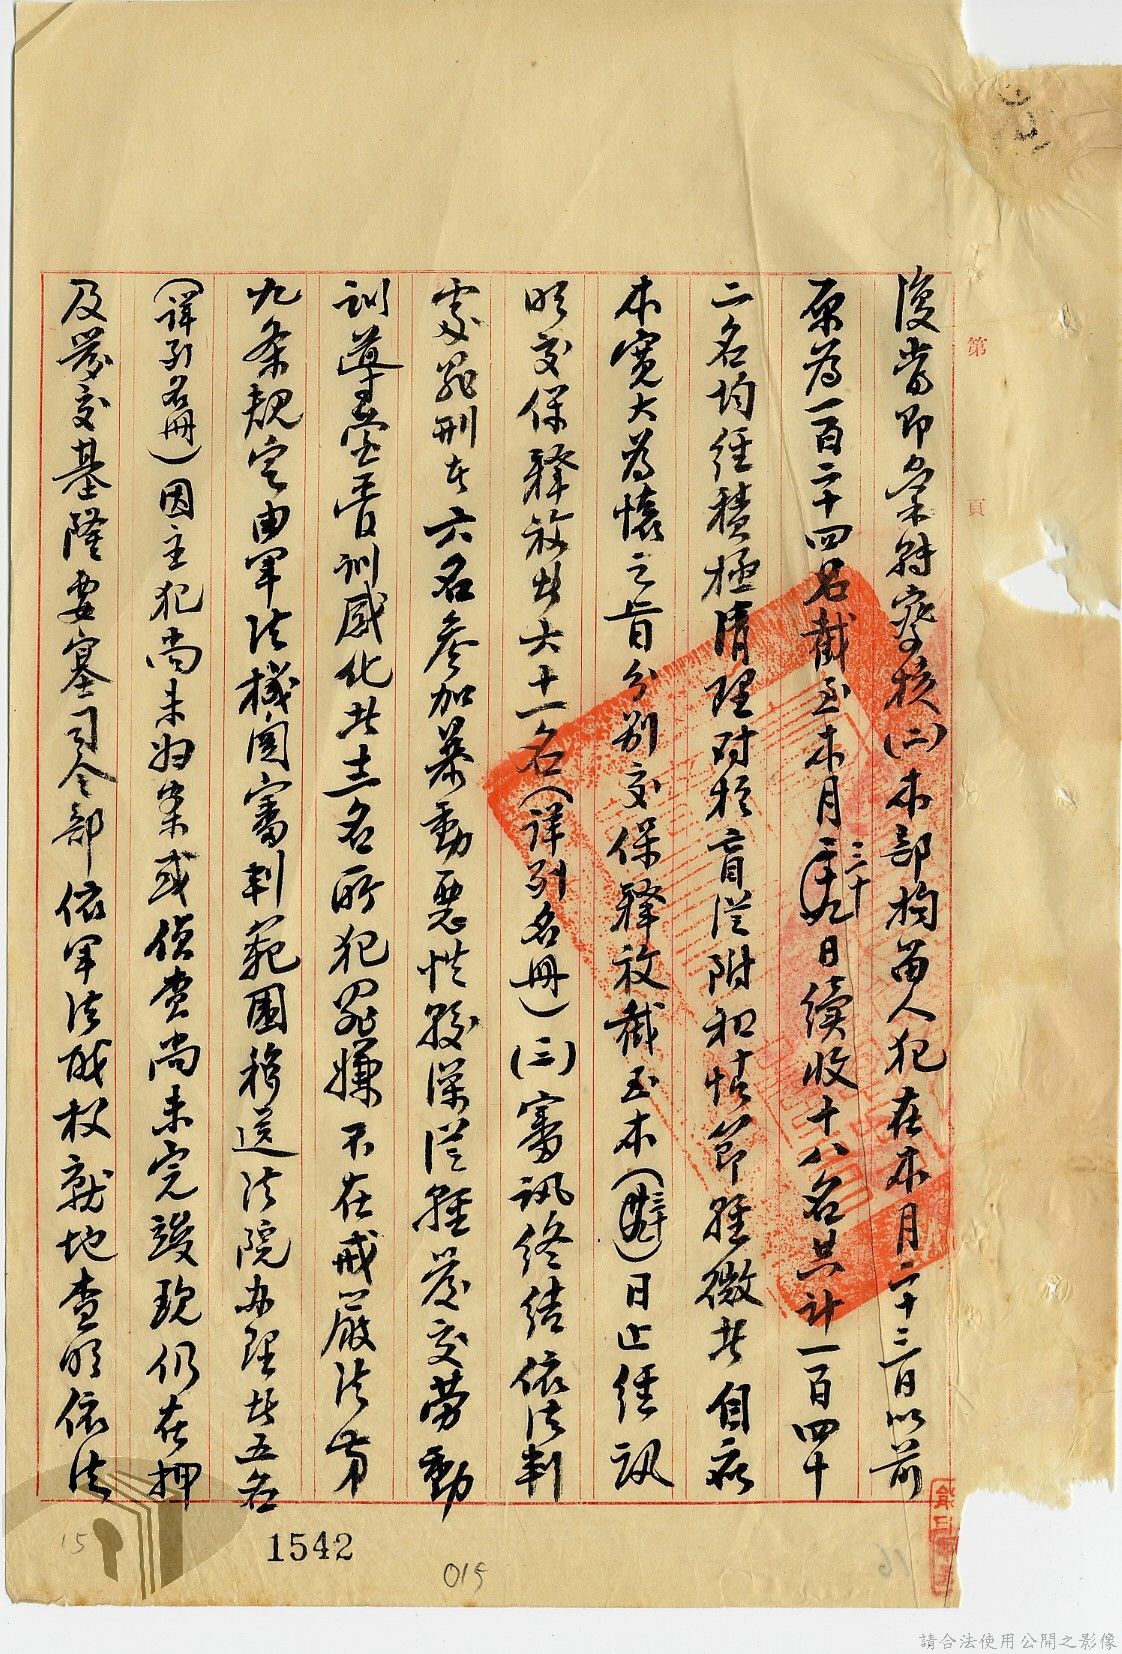 復當即彙轉察核(二)本部拘留人犯在本月二十三日以前
原為一百二十四名截至本月三十日續收十八名共計一百四十
二名均經積極清理對於盲從附和情節輕微者自應
本寬大為懷之旨分別交保釋放截至本(三十)日止經訊
明交保釋放者六十一名(詳列名冊)(三)審訊終結依法判
處罪刑者六名參加暴動惡性較深從輕發交勞動
訓導營管訓感化者十一名所犯罪嫌不在戒嚴法第
九条規定由軍法機関審判範圍移送法院办理者五名
(詳列名冊)因主犯尚未归案或偵查尚未完竣現仍在押
及發交基隆要塞司令部依軍法職权就地查明依法
第 頁
1542
019
15
16
請合法使用公開之影像